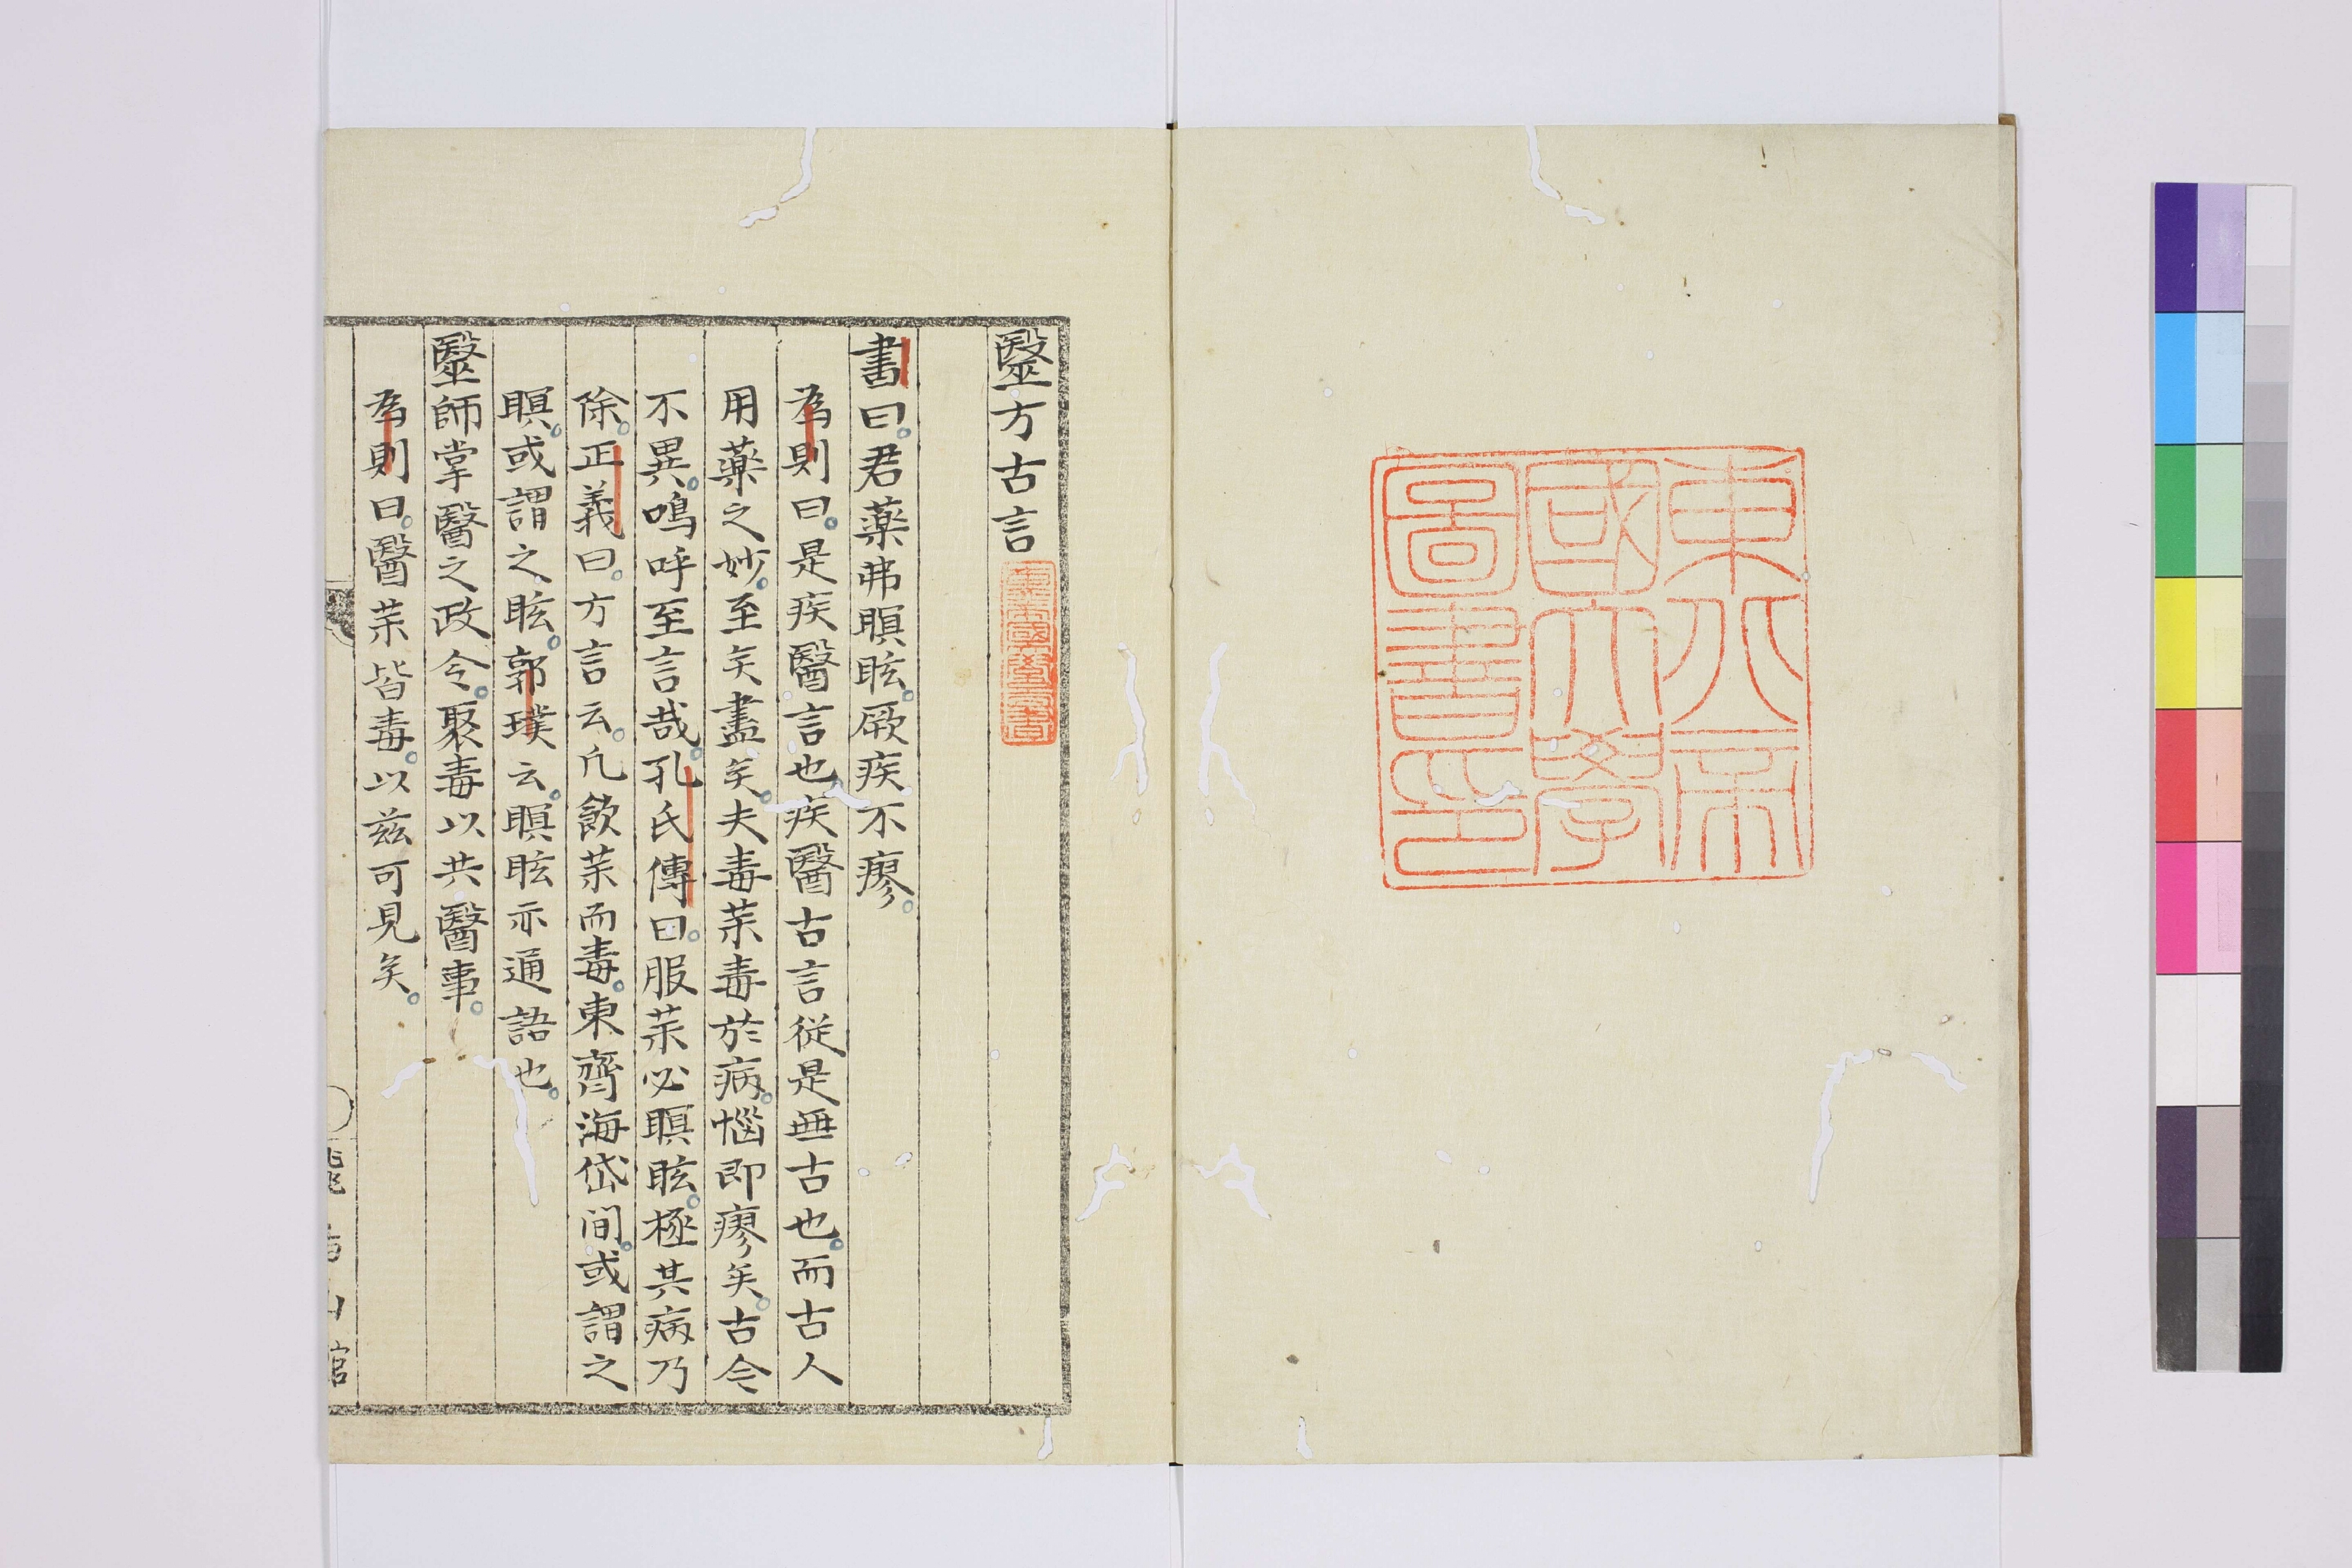 東京帝
國大學
圖書印
毉方古言
書曰君藥弗瞑眩厥疾不瘳
為則曰是疾醫言也疾醫古言従是無古也而古人
用藥之妙至矣盡矣夫毒薬毒於病惱即瘳矣古今
不異鳴呼至言哉孔氏傳曰服薬必瞑眩極其病乃
除正義曰方言云凢飲薬而毒東齊海岱间或謂之
瞑或謂之眩郭璞云瞑眩亦通語也
毉師掌醫之政令聚毒以共醫事
為則曰醫薬皆毒以兹可見矣